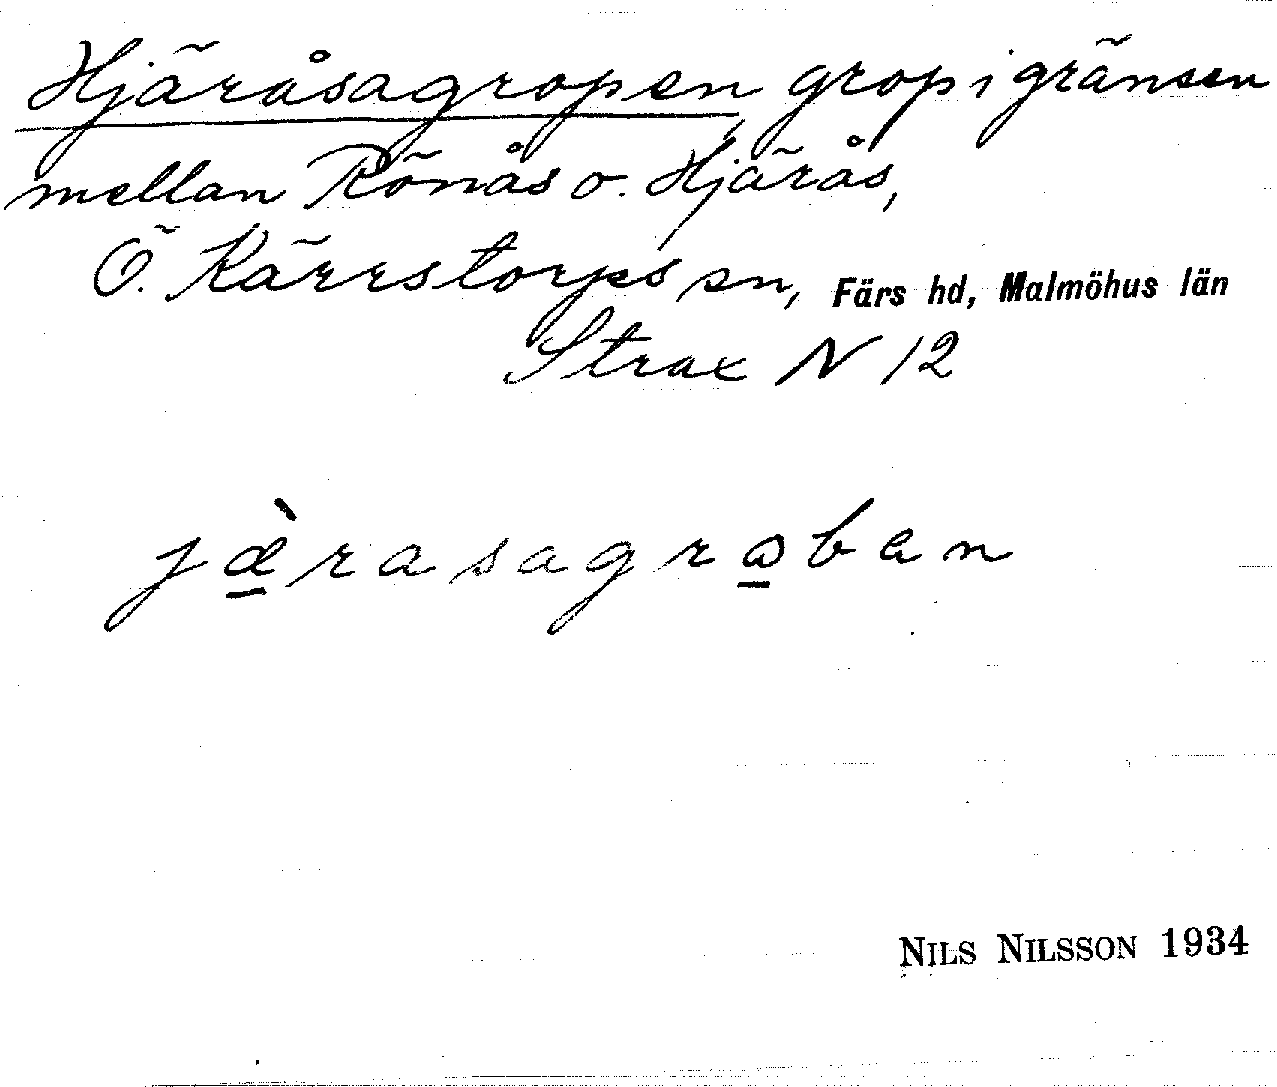 Hjäråsagropen grop i gränsen
mellan Rönås o. Hjärås,
Ö. Kärrstorps sn, Färs hd, Malmöhus län
Strax N 12
jæ̀rasagrωban
NILS NILSSON 1934